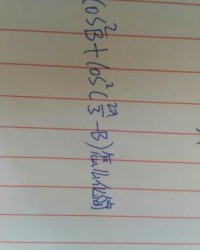 cos²B+cos²(2π/3-B)怎么化简